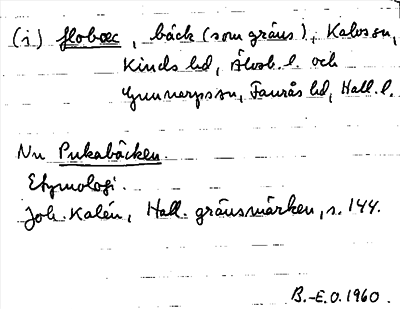 (i) flobæc, bäck (som gräns), Kalvs sn,
Kinds hd, Älvsb. l. och
Gunnarps sn, Faurås hd, Hall. l.
Nu Pukabäcken.
Etymologi.
Joh. Kalén, Hall. gränsmärken, s. 144.
B.-E.O. 1960.